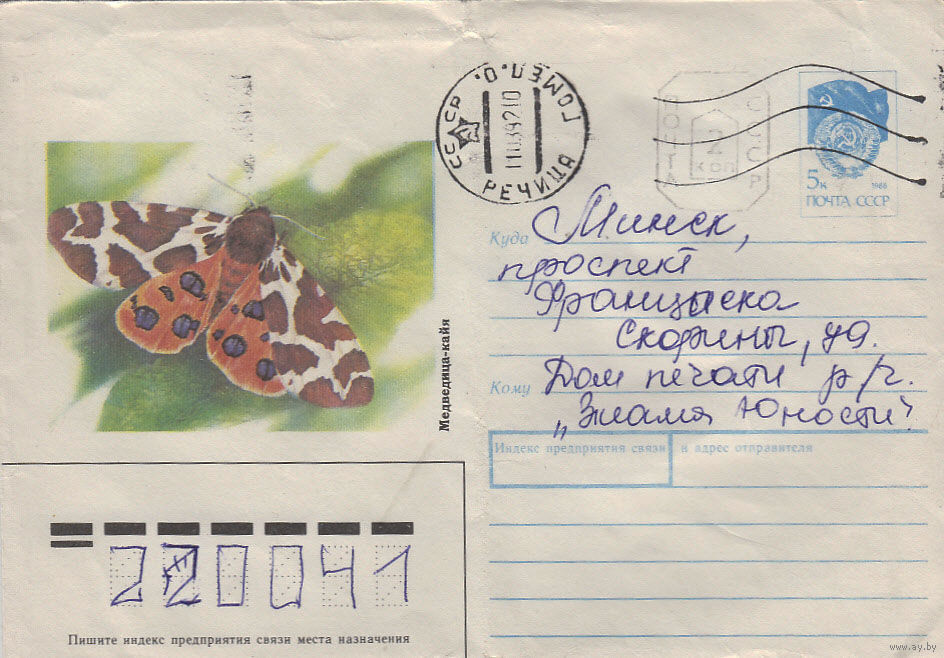 СССР
ГОМЕЛ.О.
11039210
РЕЧИЦА
ПОЧТА
СССР
2
коп
5к
1988
ПОЧТА СССР
Куда Минск,
проспект
Францыска
Скорины, уд.
Кому Дом печати р/г.
„Знамя Юности"
Индекс предприятия связи и адрес отправителя
Медведица-кайя
220041
Пишите индекс предприятия связи места назначения
www.ay.by